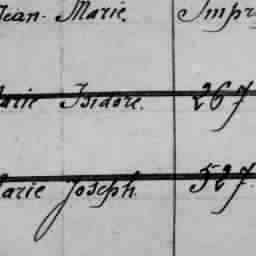 Jean-Marie Impr
arie Isidore. 267
arie Joseph. 527.